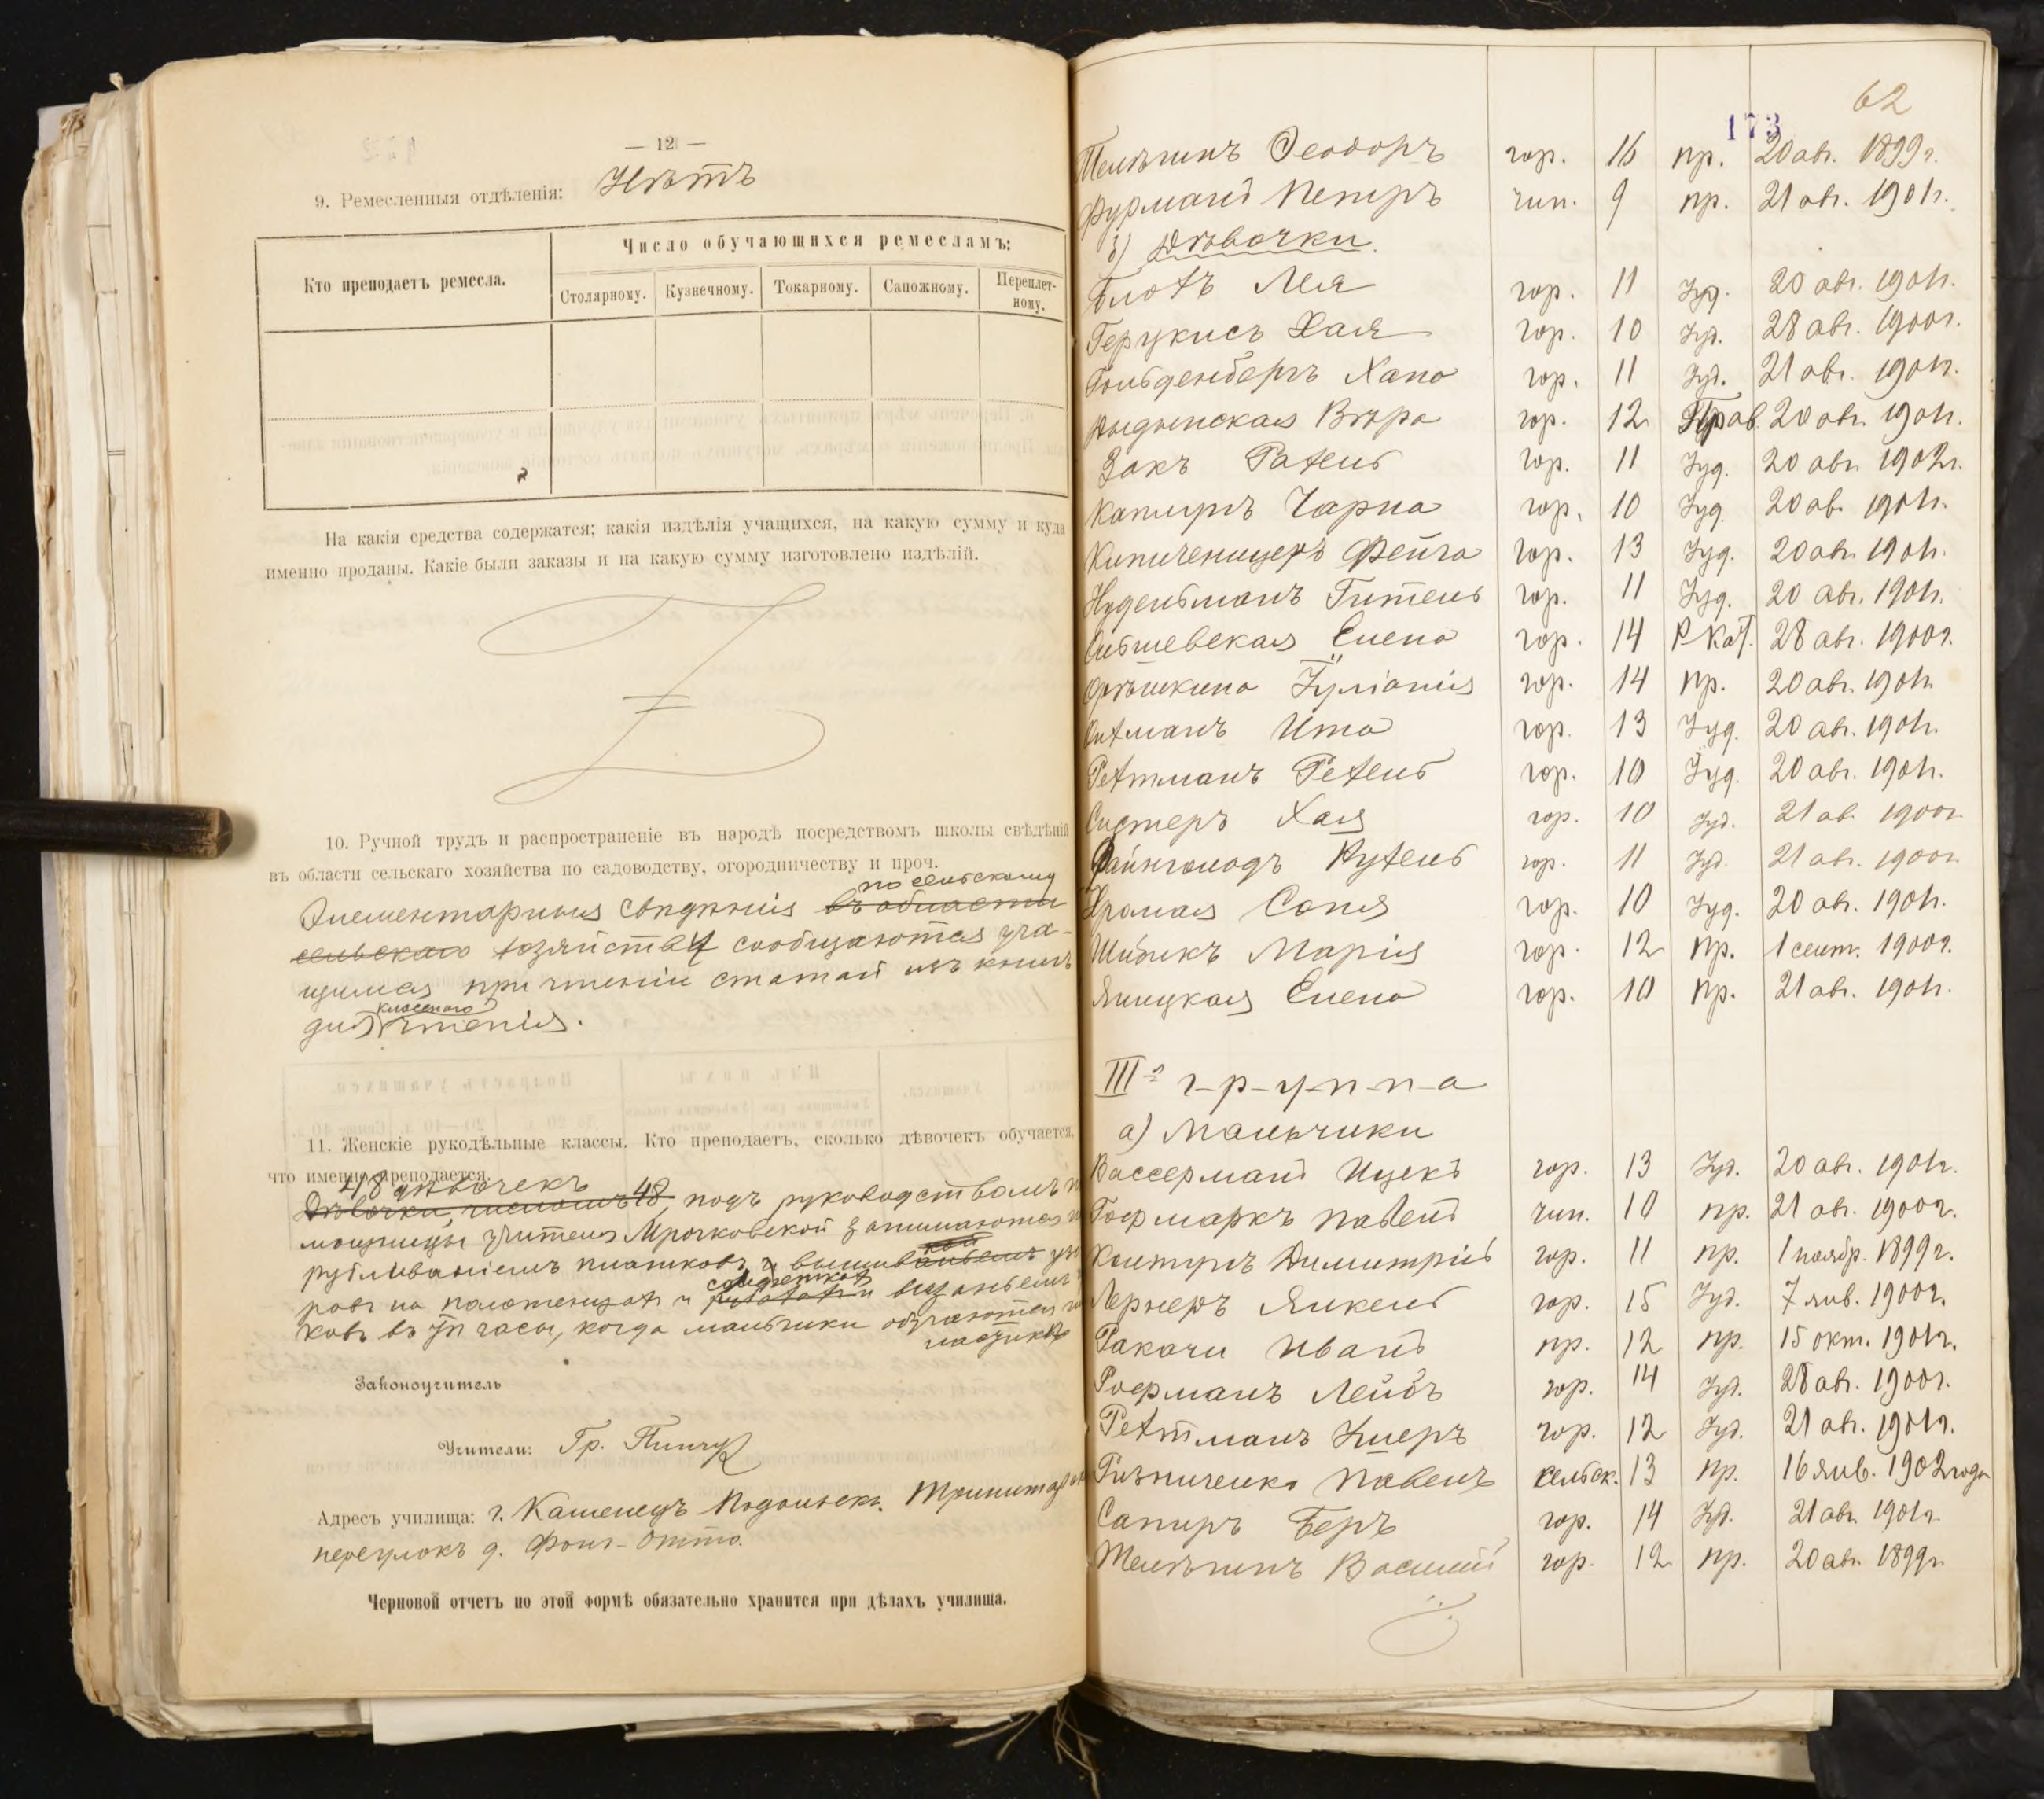 — 12 —
9. Ремесленныя отдѣленія: Нѣтъ
Кто преподаетъ ремесла.
Число обучающихся ремесламъ:
Столярному. Кузнечному. Токарному. Сапожному. Переплет-
ному.
На какія средства содержатся; какія издѣлія учащихся, на какую сумму и куда
именно проданы. Какіе были заказы и на какую сумму изготовлено издѣлій.
10. Ручной трудъ и распространеніе въ народѣ посредствомъ школы свѣдѣній
въ области сельскаго хозяйства по садоводству, огородничеству и проч.
по сельскому
Элементарныя свѣдѣнія въ области
сельскаго хозяйству сообщаются уча-
щимся при чтеніи статей изъ книгъ
класснаго
для чтенія.
11. Женскіе рукодѣльные классы. Кто преподаетъ, сколько дѣвочекъ обучается,
что именно преподается.
48 дѣвочекъ
Дѣвочки, числомъ 48, подъ руководствомъ
мощницы учителя Мрочковской занимаются
рубливаніемъ платковъ и
салфеткахъ
ровъ на полотенцахъ и вязаньемъ
ковъ въ тѣ часы, когда мальчики обучаются
Законоучитель
Учители: Гр. Пинчук
Адресъ училища: г. Каменецъ Подольскъ.
переулокъ д. Фонъ-Отто.
Черновой отчетъ по этой формѣ обязательно хранится при дѣлахъ училища.
62
173
Телѣгинъ Ѳеодоръ гор. 16 пр. 20 авг. 1899 г.
Фурманъ Петръ чин. 9 пр. 21 авг. 1901 г.
б) Дѣвочки.
Блохъ Лея гор. 11 Іуд. 20 авг. 1901 г.
Герцкисъ Хая гор. 10 Іуд. 28 авг. 1900 г.
Гольденбергъ Хана гор. 11 Іуд. 21 авг. 1901 г.
Дыдынская Вѣра гор. 12 Прав. 20 авг. 1901 г.
Закъ Рахель гор. 11 Іуд. 20 авг. 1902 г.
Каплунъ Чарна гор. 10 Іуд. 20 ав. 1901 г.
Фейга гор. 13 Іуд. 20 авг. 1901 г.
Нудельманъ Гитель гор. 11 Іуд. 20 авг. 1901 г.
Ольшевская Елена гор. 14 Р. Кат. 28 авг. 1900 г.
Орѣшкина Іуліанія гор. 14 пр. 20 авг. 1901 г.
Охманъ Ита гор. 13 Іуд. 20 авг. 1901 г.
Рехтманъ Рехель гор. 10 Іуд. 20 авг. 1901 г.
Хая гор. 10 Іуд. 21 ав. 1900 г.
Файнгольдъ Рухель гор. 11 Іуд. 21 авг. 1900 г.
Хромая Соня гор. 10 Іуд. 20 ав. 1901 г.
Марія гор. 12 пр. 1 сент. 1900 г.
Яницкая Елена гор. 10 пр. 21 авг. 1901 г.
III-я г-р-у-п-п-а
а) Мальчики
Вассерманъ Ицекъ гор. 13 Іуд. 20 авг. 1901 г.
Гофмаркъ Павелъ чин. 10 пр. 21 авг. 1900 г.
Димитрій гор. 11 пр. 1 ноябр. 1899 г.
Лернеръ Янкель гор. 15 Іуд. 7 янв. 1900 г.
Ракочи Иванъ пр. 12 пр. 15 окт. 1901 г.
Ройфманъ Лейбъ гор. 14 Іуд. 28 авг. 1900 г.
Рехтманъ Хмеръ гор. 12 Іуд. 21 авг. 1901 г.
Рѣзниченко Павелъ сельск. 13 пр. 16 янв. 1902 года
Сапиръ Беръ гор. 14 Іуд. 21 авг. 1901 г.
Телѣгинъ Василій гор. 12 пр. 20 авг. 1899 г.